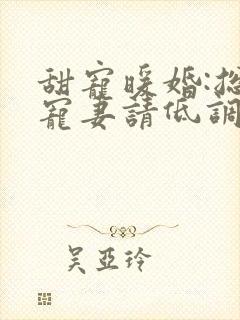 甜寵暖婚:總
寵妻請低調
吳亞玲